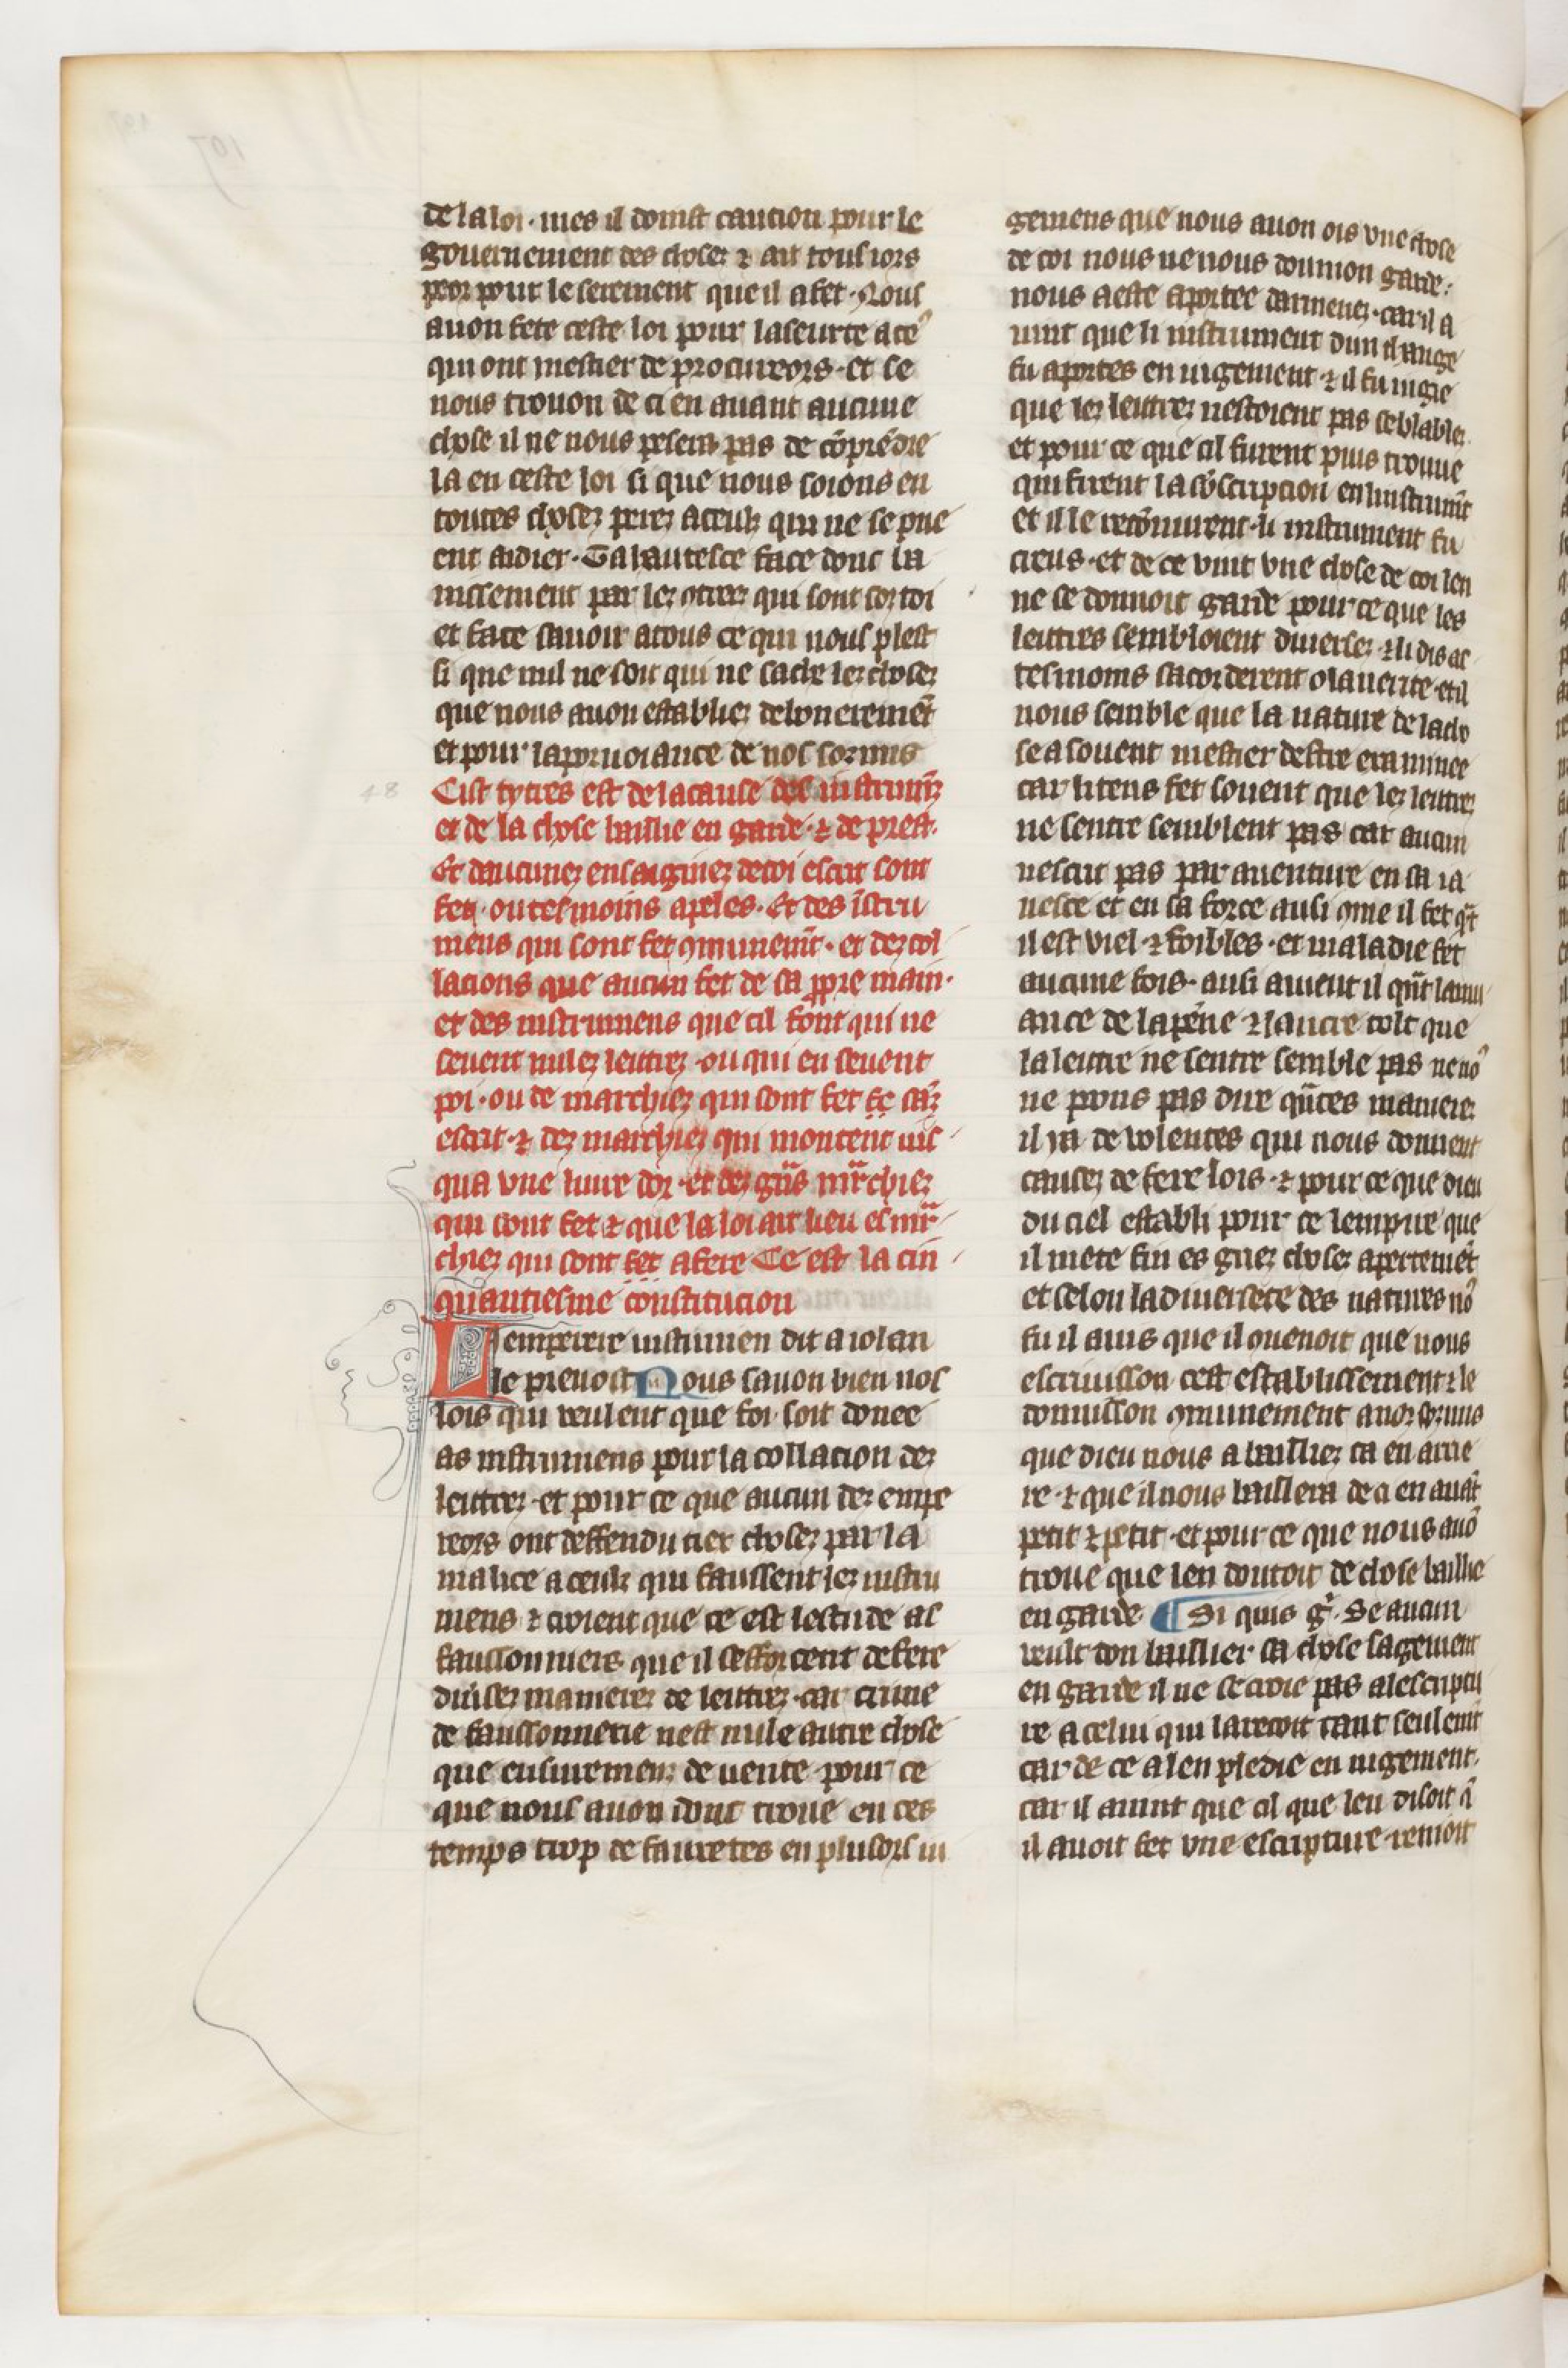 de la loi · mes il doinst caution pour le
gouernement des choses ⁊ ait tous iors
peor pour le serement que il a fet · Nous
auon fete ceste loi pour la seurte a ceꝰ
qui ont mestier de procureors · et se
nous trouon de ci en auant aucune
chose il ne nous pesera pas de cōprēdre
la en ceste loi si que nous soions en
toutes chosez perez a ceulz qui ne se pue
ent aidier · Ta hautesce face donc la
nissement par lez ꝯtreez qui sont soz toi
et face sauoir a tous ce qui nous plest
si que nul ne soit qui ne sache lez chosez
que nous auon establiez deboneremēt
et pour la poruoiance de nos sozmis
48
Cist tytres est de la cause des instrumēz
et de la chose baillie en garde · ⁊ de prest ·
Et daucunez ensaignez de coi escrit sont
fetz · ou tesmoins apeles · Et des īstru
mens qui sont fet ꝯmunemēt · et dez col
lacions que aucun fet de sa ꝓpre main ·
et des instrumens que cil font qui ne
seuent nulez lettrez · ou qui en seuent
poi · ou de marchiez qui sont fet sāz
escrit · ⁊ dez marchiez qui montent ius
qua vne liure dor · et dez grās mārchiez
qui sont fet ⁊ que la loi ait lieu es mār
chiez qui sont fet a fere Ce est la cin
quantiesme constitucion
Lemperere iustinien dit a iolan
le preuost Nous sauon bien nos
lois qui veulent que foi soit donee
as instrumens pour la collacion dez
lettrez · et pour ce que aucun dez empe
reors ont deffendu tiex chosez par la
malice a ceulz qui faussent lez instru
mens ⁊ croient que ce est lestude as
faussonniers que il sefforcent de fere
diuersez manierez de lettrez · car crime
de faussonnerie nest nule autre chose
que ensiuremenz de uerite · pour ce
que nous auon donc troue en ces
temps trop de fauxetes en plusors iu
gemens que nous auon ois vne chose
de coi nous ne nous donnion garde ·
nous a este aportee darmenez · car il a
uint que li instrument dun change
fu aportes en iugement ⁊ il fu iugie
que lez lettrez nestoient pas sēblablez
et pour ce que cil furent puis troue
qui firent la sōscripcion en linstrumēt
et il le recōnurent · li instrument fu
creus · et de ce vint vne chose de coi len
ne se donnoit garde pour ce que les
lettres sembloient diuersez · ⁊ li dis as
tesmoins sacorderent o la uerite · et il
nous semble que la nature de la cho
se a souent mestier destre examinee
car li tens fet souent que lez lettrez
ne sentre semblent pas car aucun
nescrit pas par auenture en sa ia
nesce et en sa force ausi ꝯme il fet qāt
il est viel ⁊ foibles · et maladie fet
aucune fois · ausi auient il qānt la mu
ance de la pēne ⁊ lancre tolt que
la lettre ne sentre semble pas ne noꝰ
ne pons pas dire quātes manierez
il i a de volentes qui nous donnent
causez de fere lois · ⁊ pour ce que dieu
du ciel establi pour ce lempire que
il mete fin es griez chosez apertemēt
et selon la diuersete des natures noꝰ
fu il auis que il ꝯuenoit que nous
escriuisson cest establissement ⁊ le
donnisson ꝯmunement a noz sozmis
que dieu nous a bailliez ca en arrie
re · ⁊ que il nous baillera de ci en auāt
petit ⁊ petit · et pour ce que nous auō
troue que len doutoit de chose baillie
en garde ¶ Si quis gͥ · Se aucun
veult don baillier sa chose sagement
en garde il ne se croie pas a lescriptu
re a celui qui la recoit tant seulemēt
car de ce a len pledie en iugement ·
car il auint que cil que len disoit q̄
il auoit fet vne escripture · renioit